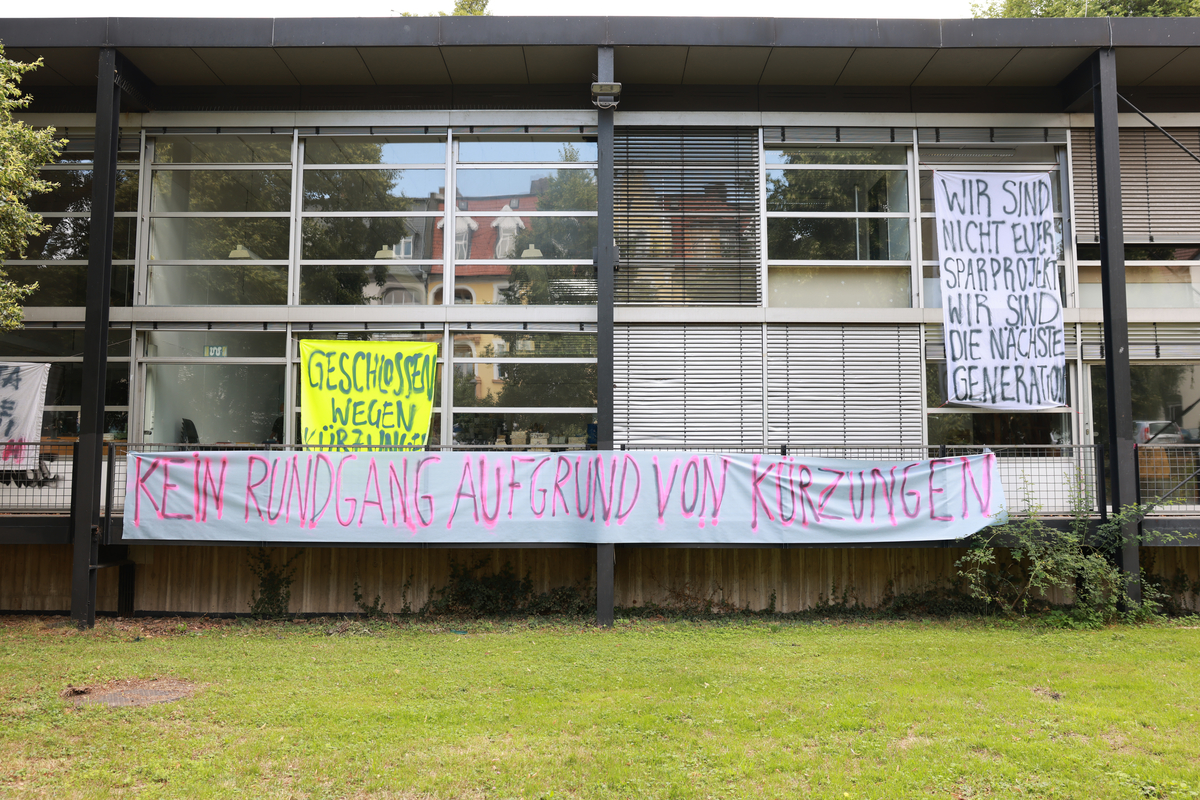 GESCHLOSSEN
WEGEN
KÜRZUNGEN
WIR SIND
NICHT EUER
SPARPROJEKT
WIR SIND
DIE NÄCHSTE
GENERATION
KEIN RUNDGANG AUFGRUND VON KÜRZUNGEN